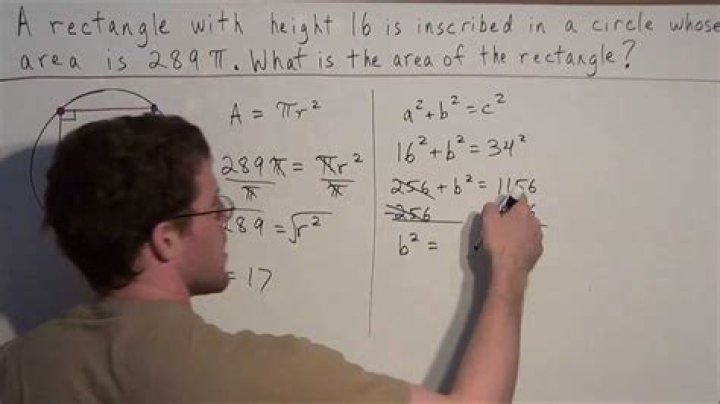 A rectangle with height 16 is inscribed in a circle whose
area is 289π. What is the area of the rectangle?
A = πr²
289π = πr²
π π
289 = √r²
= 17
a² + b² = c²
16² + b² = 34²
256 + b² = 1156
-256
b² =